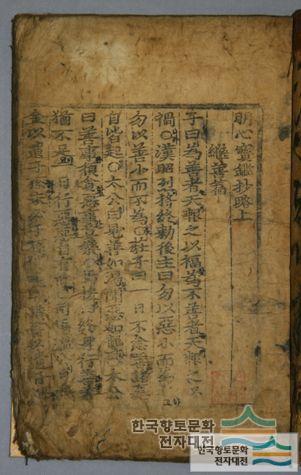 明心寶鑑抄略上
繼善篇
子曰為善者天報之以福為不善者天報之以
禍○漢昭烈將終勅後主曰勿以惡小而為
勿以善小而不為○莊子曰一日不念善諸惡
自皆起○太公曰見善如渴聞惡如聾
曰善事須貪惡事莫樂 終身行善善
猶不足一日行惡惡自有餘
金以遺子孫
한국향토문화
전자대전
한국향토문화
전자대전